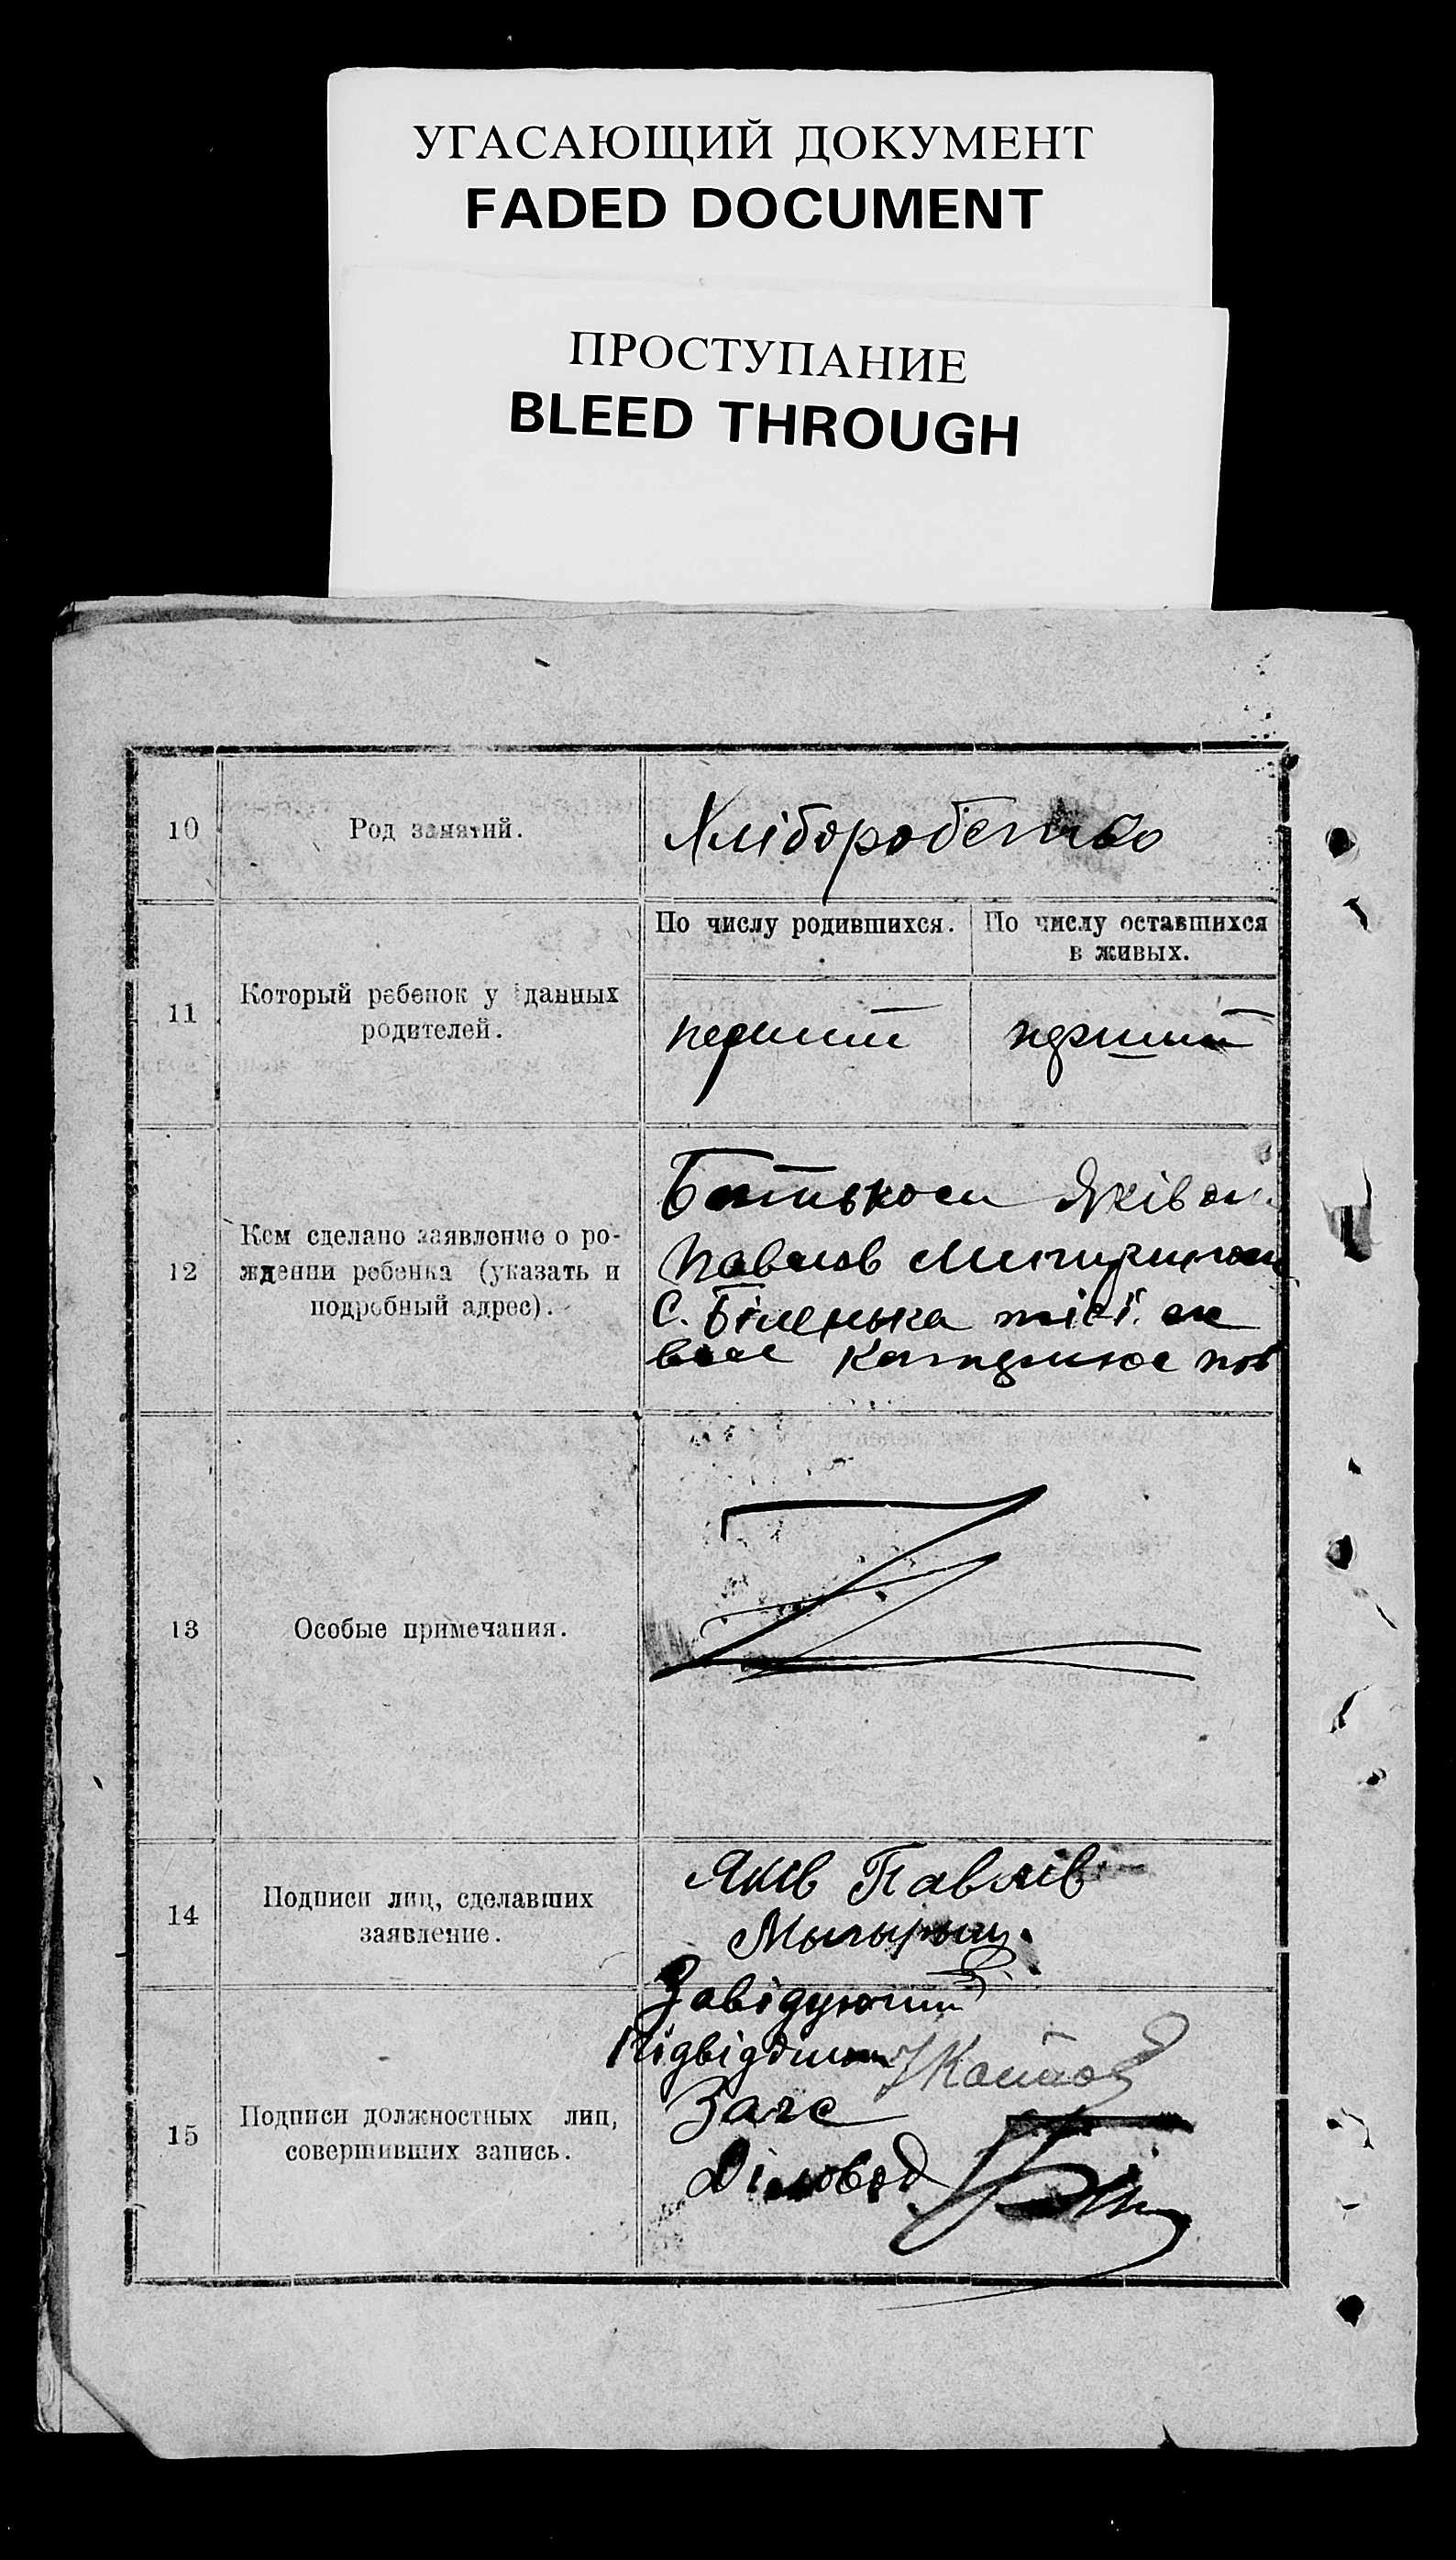 УГАСАЮЩИЙ ДОКУМЕНТ
FADED DOCUMENT
ПРОСТУПАНИЕ
BLEED THROUGH
10
Род занятий.
Хліборобство
11
Который ребенок у данных
родителей.
По числу родившихся.
По числу оставшихся
в живых.
перший
перший
12
Кем сделано заявление о ро-
ждении ребенка (указать и
подробный адрес).
Батьком Яківом
Павлов
С. Біленька тієї ж
пов
13
Особые примечания.
14
Подписи лиц, сделавших
заявление.
Якив Павлів
15
Подписи должностных лиц,
совершивших запись.
Завідуючий
Підвідділом
Загс
Діловод